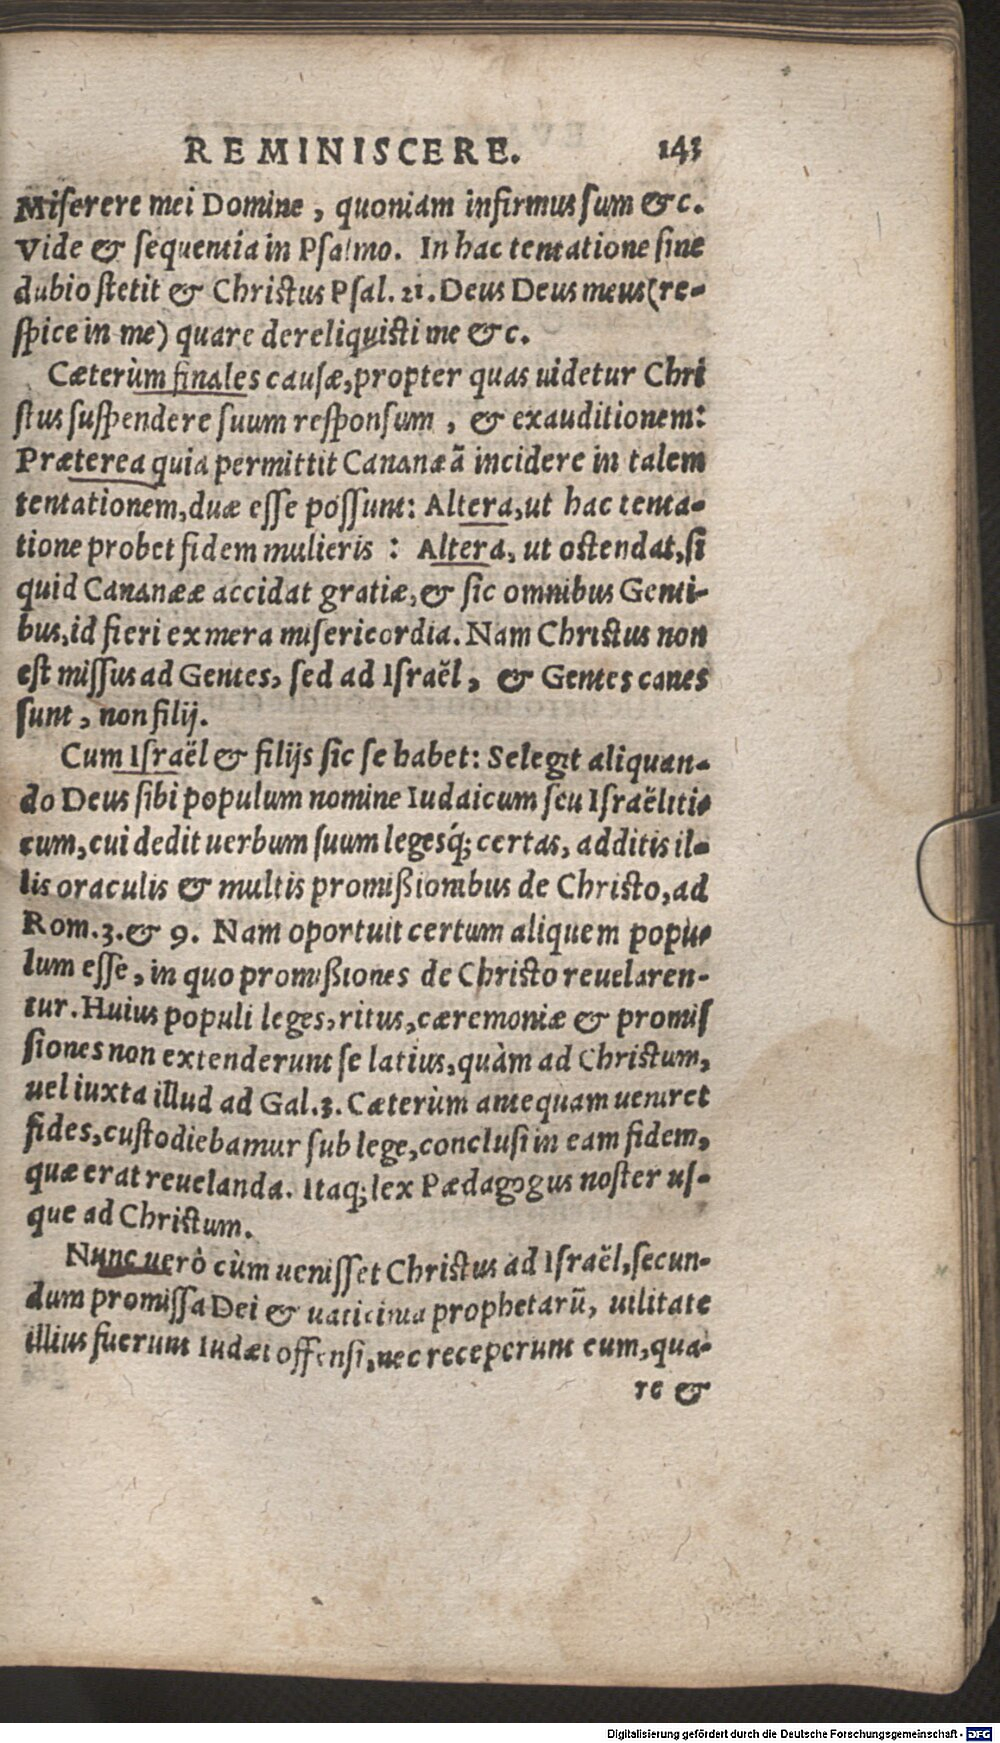 REMINISCERE. 143
Miſerere mei Domine, quoniam infirmus ſum &c.
Vide & ſequentia in Pſalmo. In hac tentatione ſine
dubio ſtetit & Chriſtus Pſal. 21. Deus Deus meus (re-
ſpice in me) quare dereliquiſti me &c.
Cæterùm finales cauſæ, propter quas uidetur Chri
ſtus ſuſpendere ſuum reſponſum, & exauditionem:
Præterea quia permittit Cananæã incidere in talem
tentationem, duæ eſſe poſſunt: Altera, ut hac tenta-
tione probet fidem mulieris: Altera, ut oſtendat, ſi
quid Cananææ accidat gratiæ, & ſic omnibus Genti-
bus, id fieri ex mera miſericordia. Nam Chriſtus non
eſt miſſus ad Gentes, ſed ad Iſraël, & Gentes canes
ſunt, non filij.
Cum Iſraël & filijs ſic ſe habet: Selegit aliquan-
do Deus ſibi populum nomine Iudaicum ſeu Iſraëliti-
cum, cui dedit uerbum ſuum legesq́; certas, additis il-
lis oraculis & multis promißionibus de Chriſto, ad
Rom. 3. & 9. Nam oportuit certum aliquem popu-
lum eſſe, in quo promißiones de Chriſto reuelaren-
tur. Huius populi leges, ritus, cæremoniæ & promiſ
ſiones non extenderunt ſe latius, quàm ad Chriſtum,
uel iuxta illud ad Gal. 3. Cæterùm antequam ueniret
fides, cuſtodiebamur ſub lege, concluſi in eam fidem,
quæ erat reuelanda. Itaq; lex Pædagogus noſter uſ-
que ad Chriſtum.
Nunc uerò cùm ueniſſet Chriſtus ad Iſraël, ſecun-
dum promiſſa Dei & uaticinia prophetarũ, uilitate
illius fuerunt Iudæi offenſi, nec receperunt eum, qua-
re &
Digitalisierung gefördert durch die Deutsche Forschungsgemeinschaft - DFG